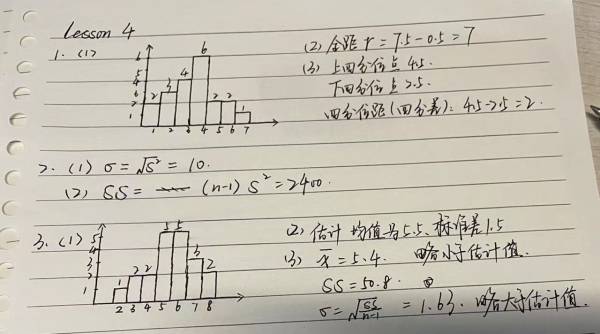 Lesson 4
1. (1)
6
5
4
3
2
1
2 3 4 6 2 2 1
1 2 3 4 5 6 7
(2) 全距 r = 7.5-0.5 = 7
(3) 上四分位点 4.5.
下四分位点 2.5.
四分位距(四分差): 4.5-2.5 = 2.
2. (1) σ = √S² = 10.
(2) SS = (n-1) S² = 2400.
3. (1)
5
4
3
2
1
1 2 2 5 5 3 2
2 3 4 5 6 7 8
(2) 估计 均值为5.5、标准差1.5
(3) x̄ = 5.4. 略小于估计值.
SS = 50.8.
σ = √SS/n-1 = 1.63. 略大于估计值.